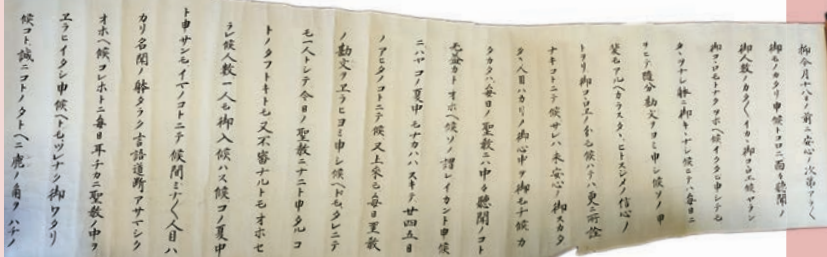 抑今月十八日ノ前ニ安心ノ次第アラ〱
御モノカタリ申候トコロニ面々聽聞ノ
御人數ノカタ〱イカヽ御コヽロエ候ヤラン
御コヽロモトナクオホヘ候イクタヒ申シテモ
タヽヲナシ躰ニ御キヽナシ候ニテハ毎日ニ
ヲヒテ隨分勘文ヲヨミ申シ候ソノ申
斐モアルヘカラスタヽヒトスシメノ信心ノ
トヲリ御コヽロエノ分モ候ハテハ更ニ所詮
ナキコトニテ候サレハ未安心ノ御スカタ
タヽ人目ハカリノ御心中ヲ御モチ候カ
タカタハ毎日ノ聖教ニハ中々聽聞ノコト
モ益カトオホヘ候ソノ謂レイカント申候
ニハヤコノ夏中モナカハハスキテ廿四五日
ノアヒタノコトニテ候又上來モ毎日聖教
ノ勘文ヲヱラヒヨミ申シ候ヘトモタレニテ
モ一人トシテ今日ノ聖教ニナニト申タルコ
トノタフトキトモ又不審ナルトモオホセ
ラレ候人數一人モ御入候ハス候コノ夏中
ト申サンモイマノコトニテ候間ミナ〱人目ハ
カリ名聞ノ躰タラク言語道斷アサマシク
オホヘ候コレホトニ毎日耳チカニ聖教ノ中ヲ
ヱラヒイタシ申候ヘトモツレナク御ワタリ
候コト誠ニコトノタトヘニ鹿ノ角ヲハチノ